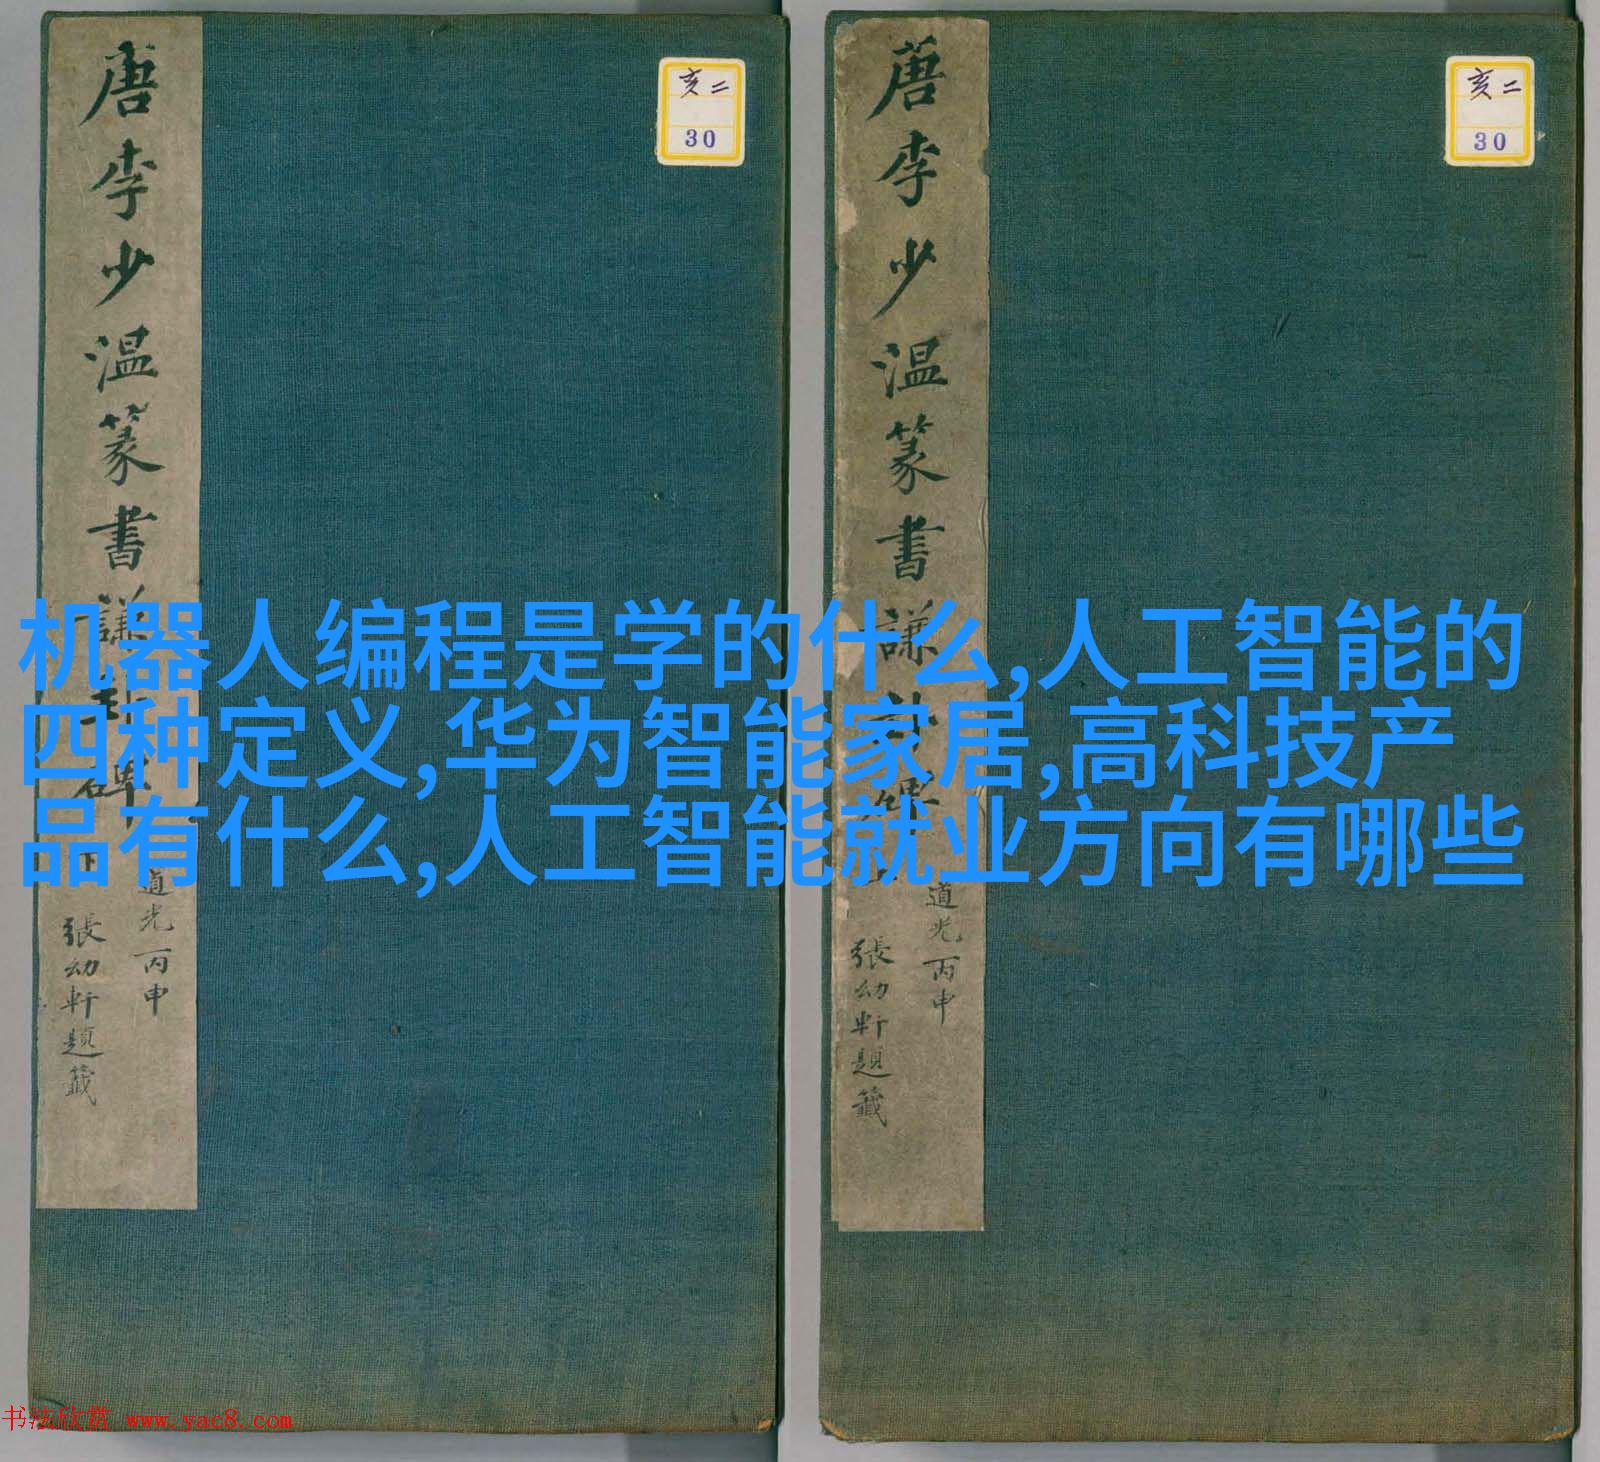 唐李少温篆書謙卦碑下
道光丙申
張幼軒題籤
亥二
30
唐李少温篆書謙卦碑上
道光丙申
張幼軒題籤
亥二
30
机器人编程是学的什么,人工智能的
四种定义,华为智能家居,高科技产
品有什么,人工智能就业方向有哪些
书法欣赏 www.yac8.com